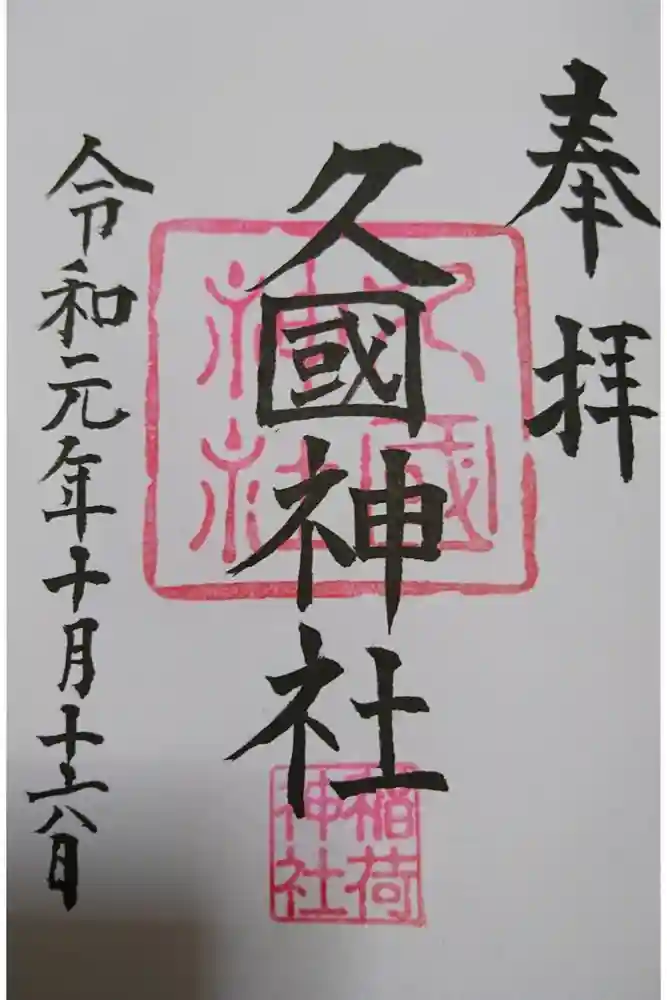 奉拝
久國神社
久國
神社
稲荷
神社
令和元年十月十六日